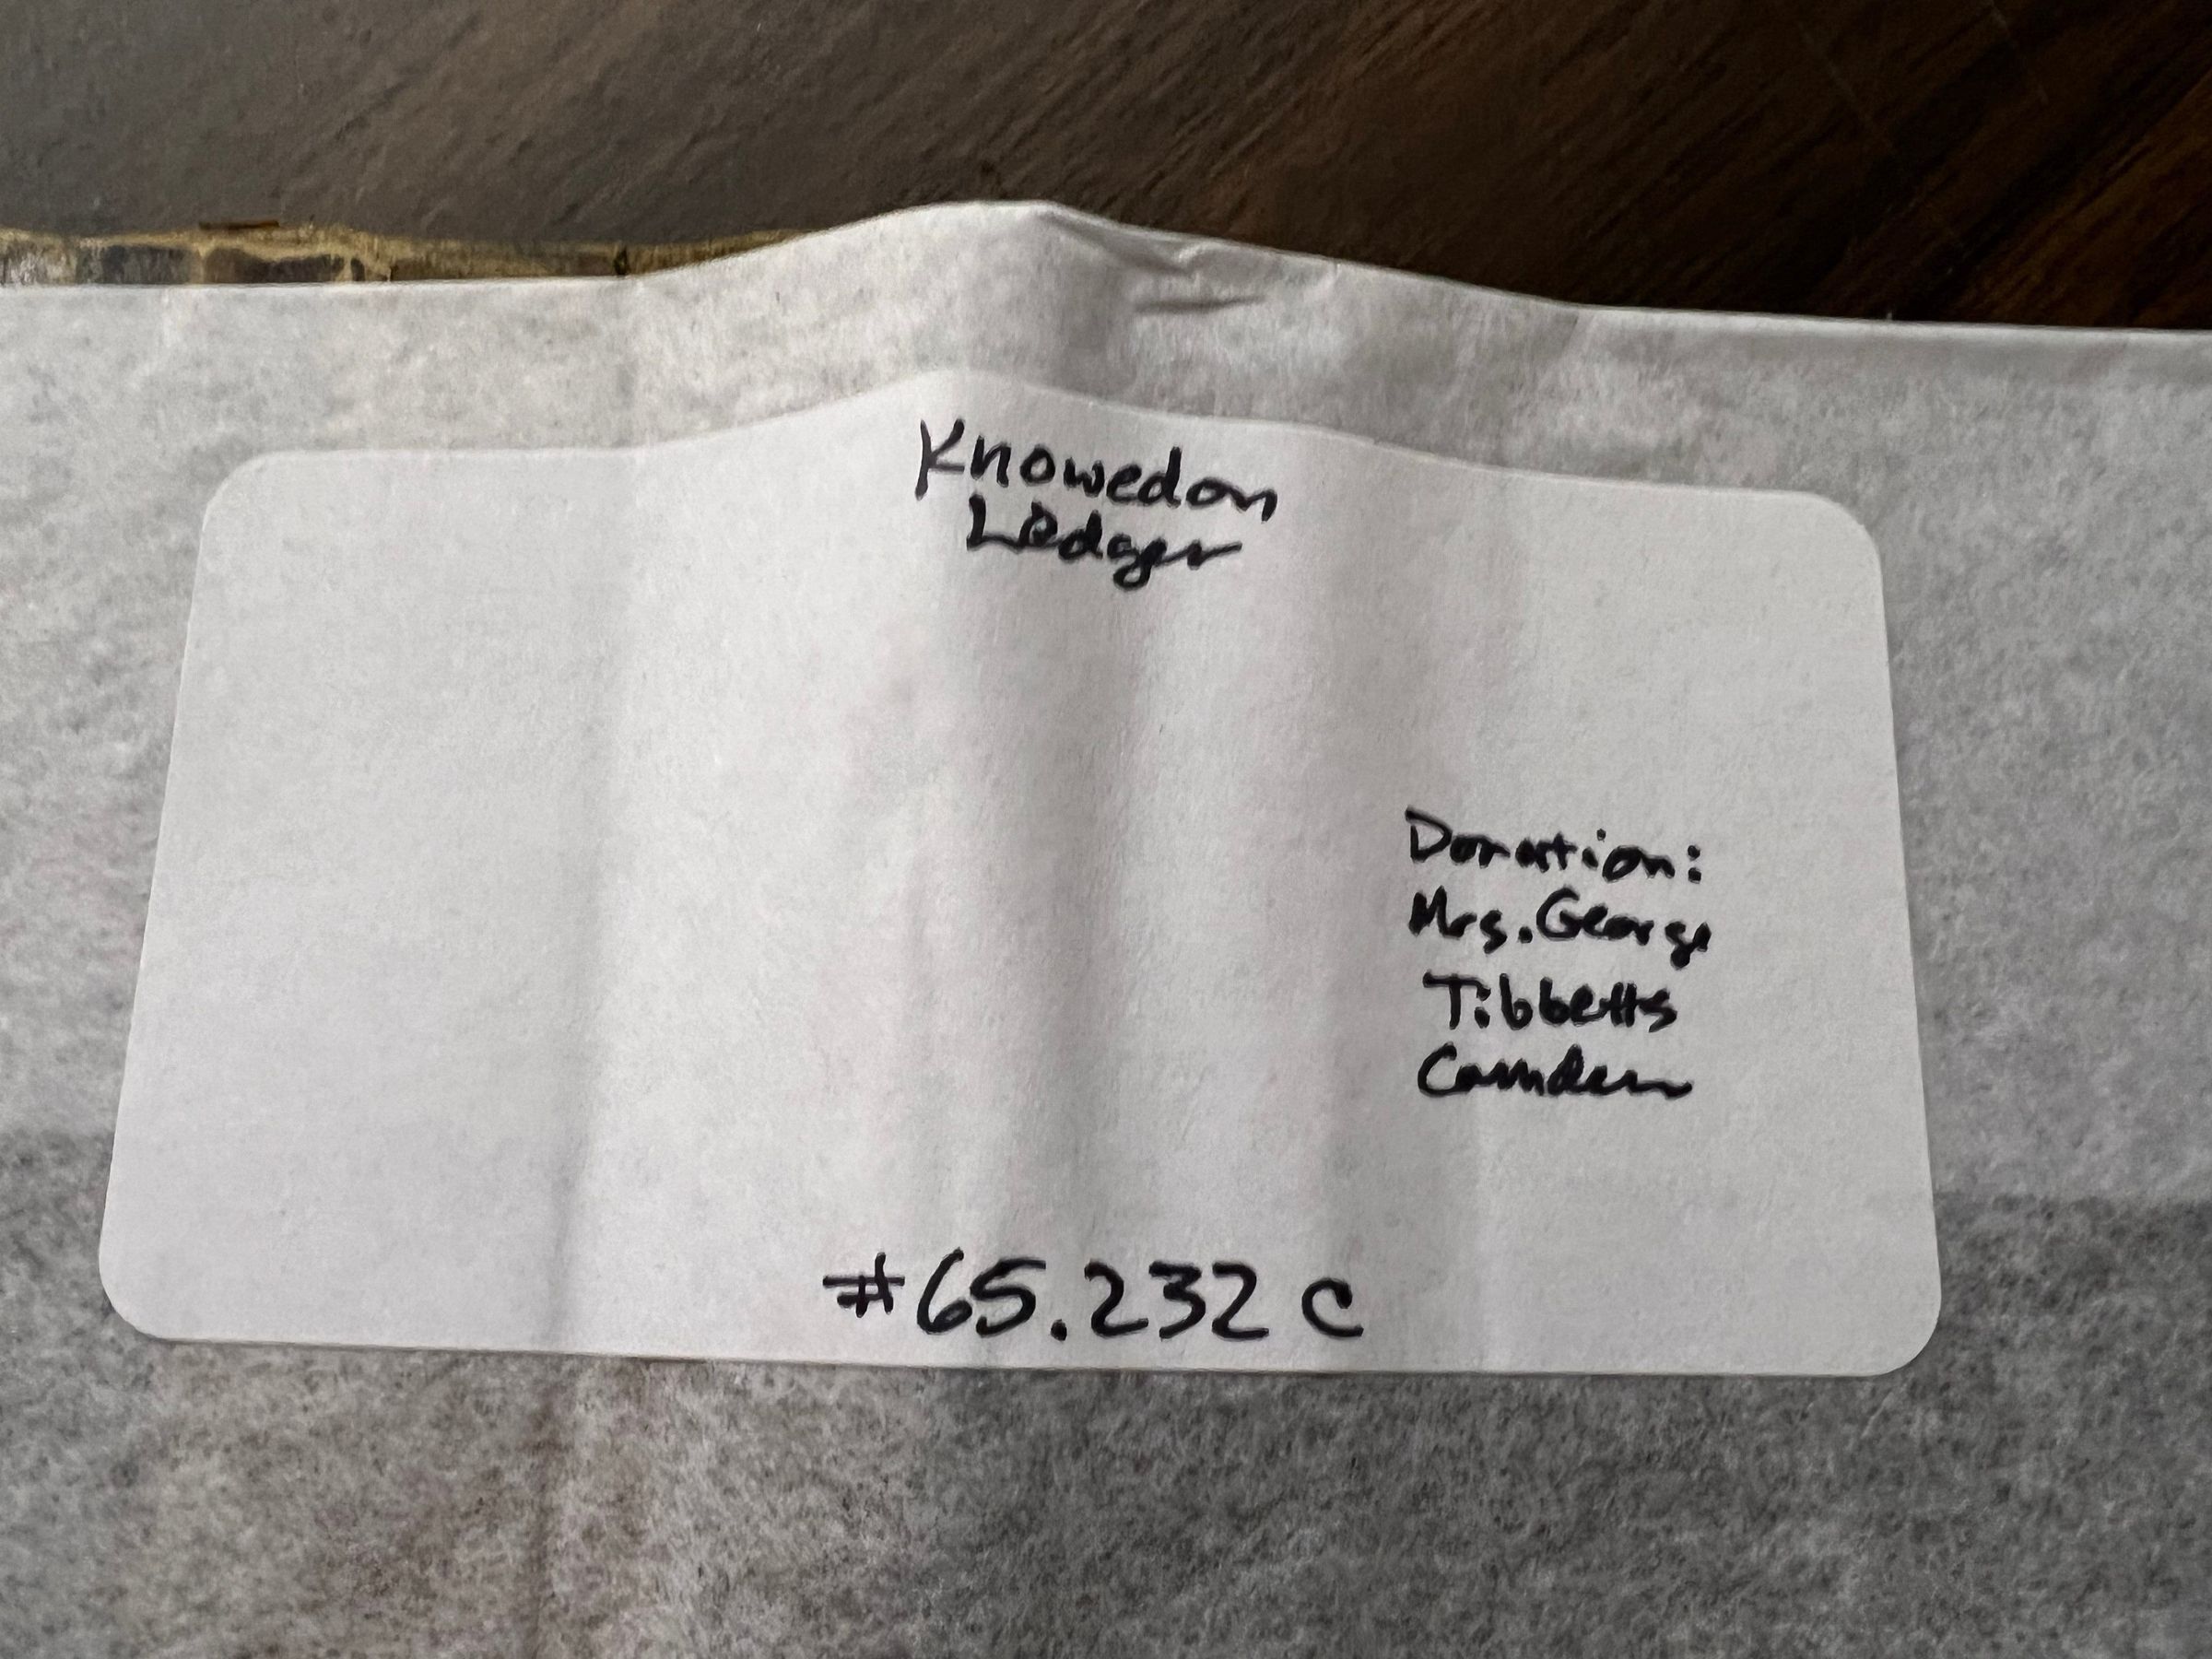 Knowedon
Ledger
Donation:
Mrs. George
Tibbetts
Camden
#65.232 c